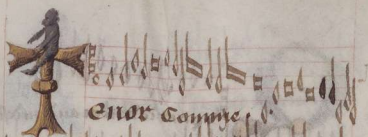 Tenor Comme